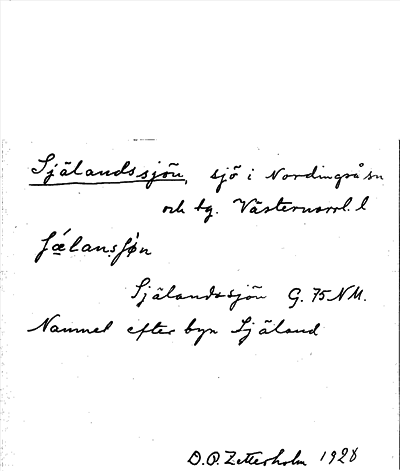 Själandssjön, sjö i Nordingrå sn
och tg. Västernorrl. l
ʃǽlansʃø̀n
Själandssjön G. 75 NM.
Namnet efter byn Själand
D.O. Zetterholm 1928